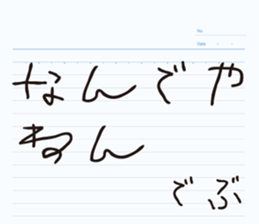 No.
Date ・ ・
なんでや
ねん
でぶ